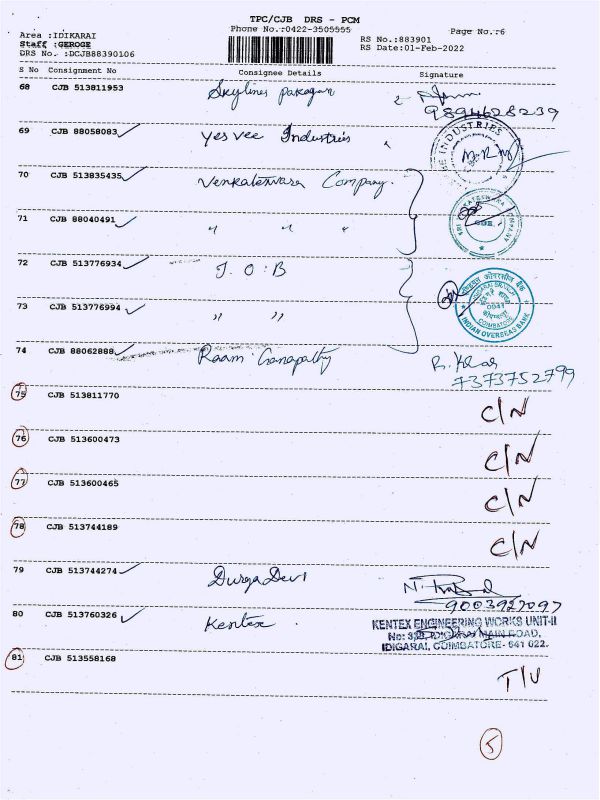 TPC/CJB DRS - PCM
Phone No.:0422-3505555
Page No.:6
Area :IDIKARAI
Staff :GEROGE
DRS No. :DCJB88390106
RS No.:883901
RS Date:01-Feb-2022
S No Consignment No Consignee Details Signature
68 CJB 513811953 Skylines pakagan
9894628239
69 CJB 88058083 Yes vee Industries
INDUSTRIES
70 CJB 513835435 Venkateswara Company.
71 CJB 88040491 " " "
72 CJB 513776934 I.O.B
73 CJB 513776994 " "
IDIGARAI BRANCH
COIMBATORE
INDIAN OVERSEAS BANK
74 CJB 88062888 Raam Ganapathy
7373752799
75 CJB 513811770 C/N
76 CJB 513600473 C/N
77 CJB 513600465 C/N
78 CJB 513744189 C/N
79 CJB 513744274 Durga Devi
9003927097
80 CJB 513760326 Kentex
KENTEX ENGINEERING WORKS UNIT-II
MAIN ROAD,
IDIGARAI, COIMBATORE- 641 022.
81 CJB 513558168 T/U
5